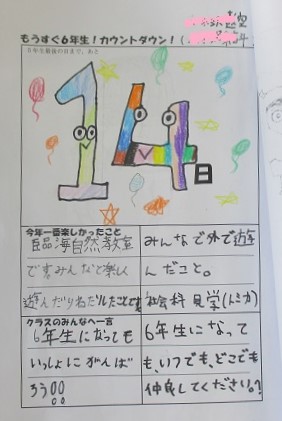 もうすぐ6年生！カウントダウン！(
5年生最後の日まで、あと
14日
今年一番楽しかったこと
臨海自然教室
ですみんなと楽しく
遊んだりねたりしたことです
みんなで外で遊
んだこと。
社会科見学(トミカ)
クラスのみんなへ一言
6年生になっても
いっしょにがんば
ろう!!
6年生になって
も、いつでも、どこでも
仲良してください。